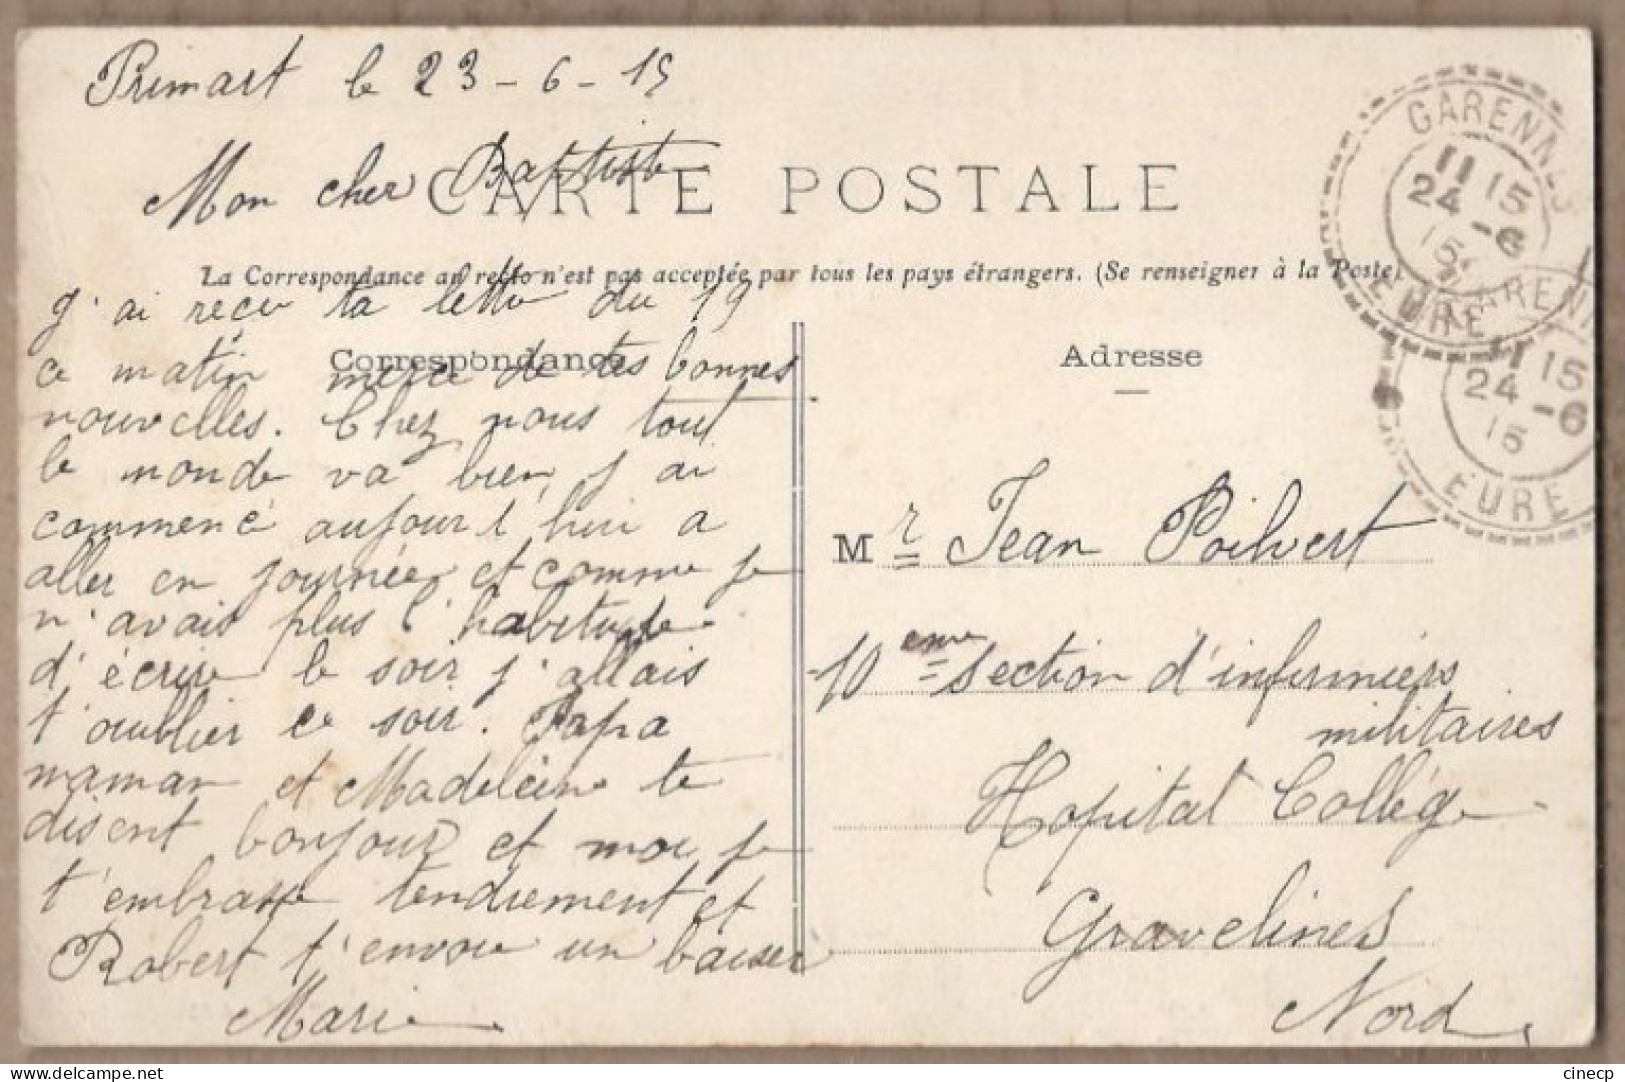 Primart le 23-6-15
Mon cher Baptiste
CARTE POSTALE
La Correspondance au recto n'est pas acceptée par tous les pays étrangers. (Se renseigner à la Poste)
Correspondance
j'ai reçu ta lettre du 19
ce matin merci de tes bonnes
nouvelles. Chez nous tout
le monde va bien, j'ai
commencé aujourd'hui a
aller en journée et comme je
n'avais plus l'habitude
d'écrire le soir j'allais
t'oublier ce soir. Papa
maman et Madeleine te
disent bonjour et moi je
t'embrasse tendrement et
Robert t'envoie un baiser
Marie
Adresse
Mr Jean Poilvert
10eme section d'infirmiers
militaires
Hopital Collége
Gravelines
Nord
GARENNES
11 15
24 -6
15
EURE
GARENN
11 15
24 -6
15
EURE
delcampe.net
cinecp